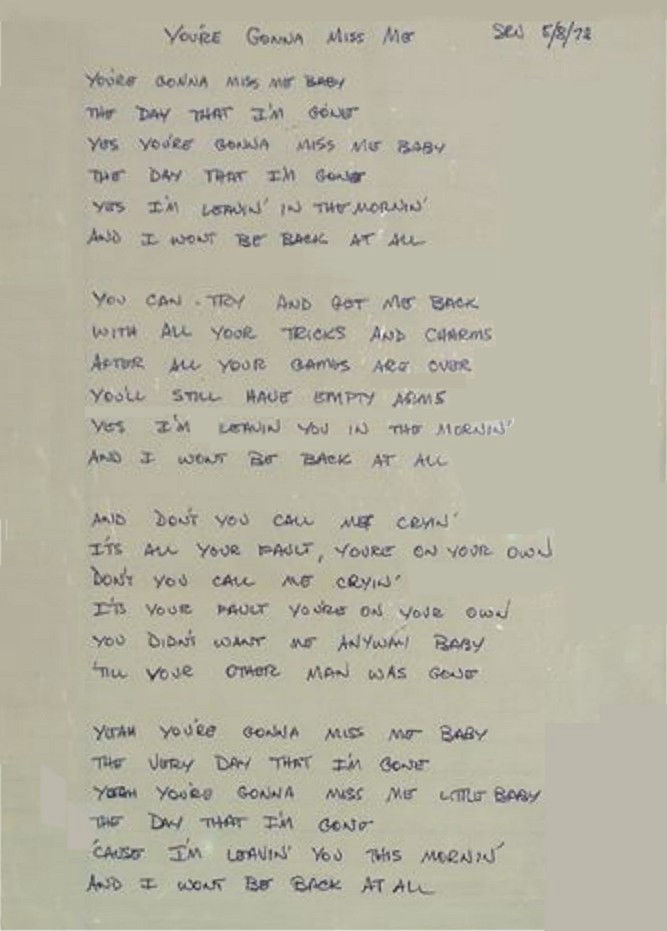 YOU'RE GONNA MISS ME SRV 5/8/72
YOU'RE GONNA MISS ME BABY
THE DAY THAT I'M GONE
YES YOU'RE GONNA MISS ME BABY
THE DAY THAT I'M GONE
YES I'M LEAVIN' IN THE MORNIN'
AND I WONT BE BACK AT ALL
YOU CAN TRY AND GET ME BACK
WITH ALL YOUR TRICKS AND CHARMS
AFTER ALL YOUR GAMES ARE OVER
YOU'LL STILL HAVE EMPTY ARMS
YES I'M LEAVIN YOU IN THE MORNIN'
AND I WONT BE BACK AT ALL
AND DON'T YOU CALL ME CRYIN'
IT'S ALL YOUR FAULT, YOURE ON YOUR OWN
DON'T YOU CALL ME CRYIN'
IT'S YOUR FAULT YOU'RE ON YOUR OWN
YOU DIDN'T WANT ME ANYWAY BABY
'TILL YOUR OTHER MAN WAS GONE
YEAH YOU'RE GONNA MISS ME BABY
THE VERY DAY THAT I'M GONE
YEAH YOU'RE GONNA MISS ME LITTLE BABY
THE DAY THAT I'M GONE
'CAUSE I'M LEAVIN' YOU THIS MORNIN'
AND I WONT BE BACK AT ALL